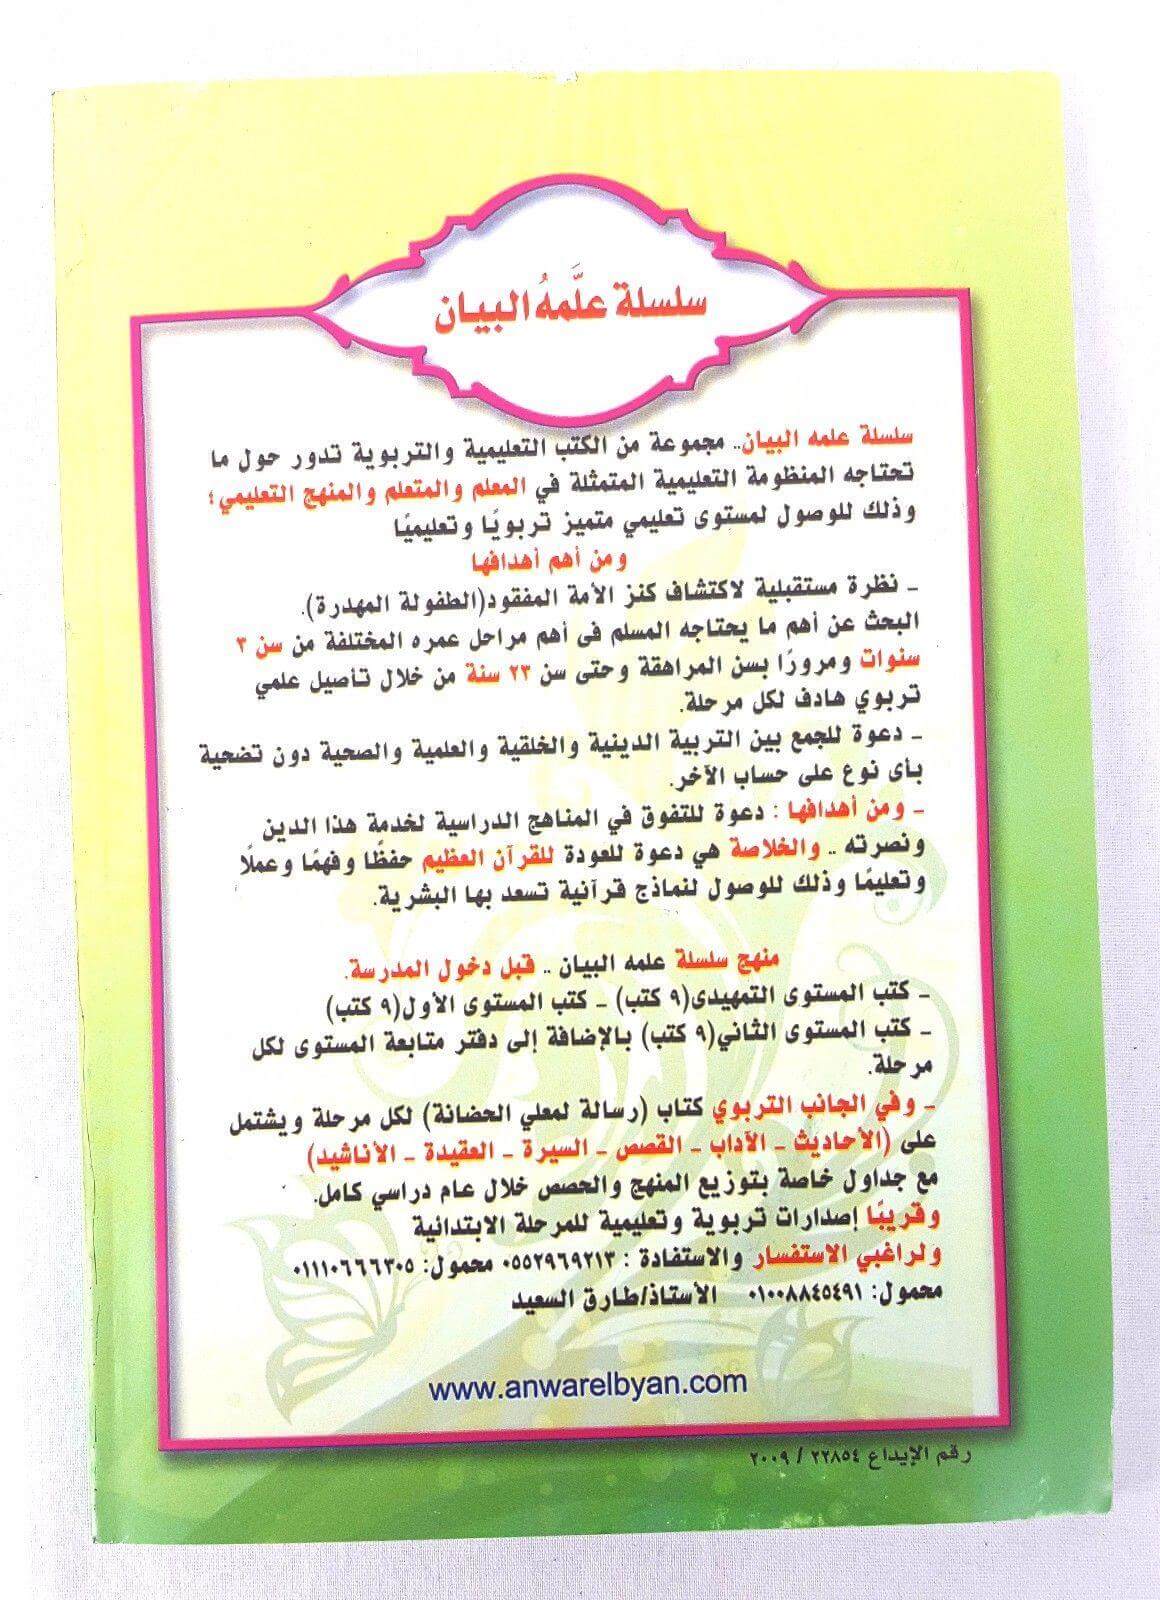 سلسلة علَّمهُ البيان
سلسلة علمه البيان.. مجموعة من الكتب التعليمية والتربوية تدور حول ما
تحتاجه المنظومة التعليمية المتمثلة في المعلم والمتعلم والمنهج التعليمي؛
وذلك للوصول لمستوى تعليمي متميز تربويًا وتعليميًا
ومن أهم أهدافها
- نظرة مستقبلية لاكتشاف كنز الأمة المفقود(الطفولة المهدرة).
البحث عن أهم ما يحتاجه المسلم فى أهم مراحل عمره المختلفة من سن ٣
سنوات ومرورًا بسن المراهقة وحتى سن ٢٣ سنة من خلال تأصيل علمي
تربوي هادف لكل مرحلة.
- دعوة للجمع بين التربية الدينية والخلقية والعلمية والصحية دون تضحية
بأى نوع على حساب الآخر.
- ومن أهدافها : دعوة للتفوق في المناهج الدراسية لخدمة هذا الدين
ونصرته .. والخلاصة هي دعوة للعودة للقرآن العظيم حفظًا وفهمًا وعملًا
وتعليمًا وذلك للوصول لنماذج قرآنية تسعد بها البشرية.
منهج سلسلة علمه البيان .. قبل دخول المدرسة.
- كتب المستوى التمهيدى(٩ كتب) - كتب المستوى الأول(٩ كتب)
- كتب المستوى الثاني(٩ كتب) بالإضافة إلى دفتر متابعة المستوى لكل
مرحلة.
- وفي الجانب التربوي كتاب (رسالة لمعلي الحضانة) لكل مرحلة ويشتمل
على (الأحاديث - الآداب - القصص - السيرة - العقيدة - الأناشيد)
مع جداول خاصة بتوزيع المنهج والحصص خلال عام دراسي كامل.
وقريبًا إصدارات تربوية وتعليمية للمرحلة الابتدائية
ولراغبي الاستفسار والاستفادة : ٠٥٥٢٩٦٩٢١٣ محمول: ٠١١١٠٦٦٦٣٠٥
محمول: ٠١٠٠٨٨٤٥٤٩١ الأستاذ/طارق السعيد
www.anwarelbyan.com
رقم الإيداع ٢٢٨٥٤ / ٢٠٠٩